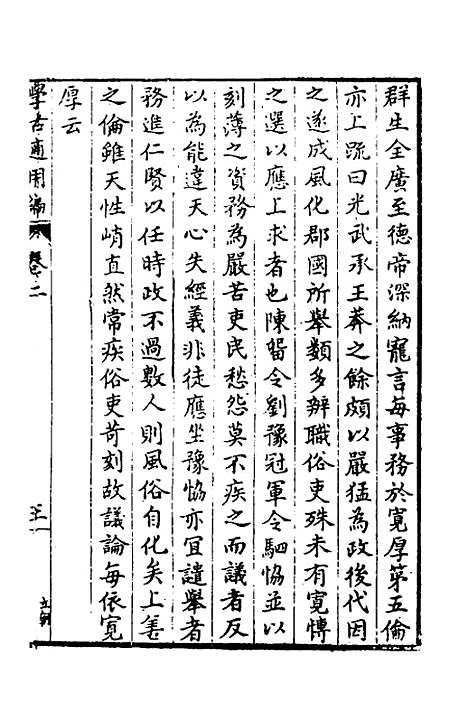 群生全廣至德帝深納寵言每事務於寬厚第五倫
亦上疏曰光武承王莽之餘頗以嚴猛為政後代因
之遂成風化郡國所舉類多辦職俗吏殊未有寬愽
之選以應上求者也陳畱令劉豫冠軍令駟恊並以
刻薄之資務為嚴苦吏民愁怨莫不疾之而議者反
以為能違天心失經義非徒應坐豫恊亦宜譴舉者
務進仁賢以任時政不過數人則風俗自化矣上善
之倫雖天性峭直然常疾俗吏苛刻故議論每依寬
厚云
學古適用編
卷之二